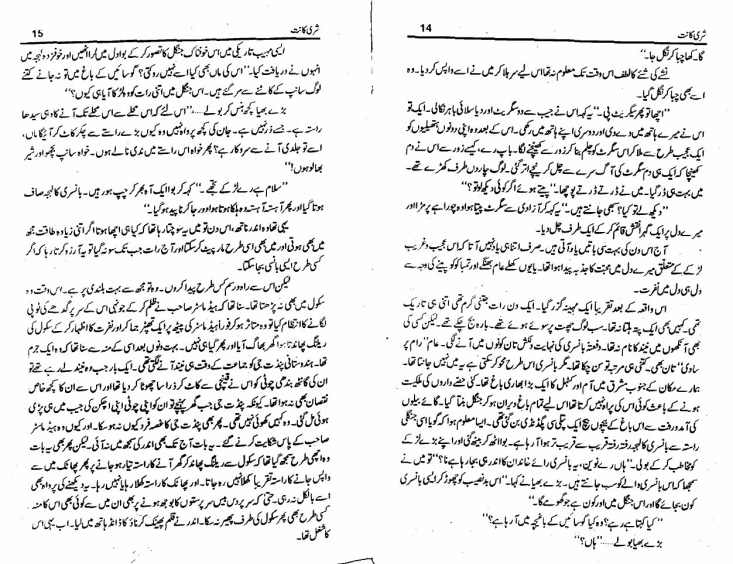 14
شری کانت
گا۔ کھا چبا کر نگل جا۔"
نشے کی شئے کا لطف اس وقت تک معلوم نہ تھا اس لیے سر ہلا کر میں نے اسے واپس کر دیا۔ وہ
اسے بھی چبا کر نگل گیا۔
"اچھا تو پھر سگریٹ پی۔" یہ کہہ اس نے جیب سے دو سگریٹ اور دیا سلائی باہر نکالی۔ ایک تو
اس نے میرے ہاتھ میں دے دی اور دوسری اپنے ہاتھ میں رکھی۔ اس کے بعد وہ اپنی دونوں ہتھیلیوں کو
ایک عجیب طرح سے ملا کر اس سگرٹ کو چلم بنا کر زور سے کھینچنے لگا۔ باپ رے، کیسے زور سے اس نے دم
کھینچا کہ ایک ہی دم سگرٹ کی آگ سرے سے چل کر نیچے اتر گئی۔ لوگ چاروں طرف کھڑے تھے۔
میں بہت ہی ڈر گیا۔ میں نے ڈرتے ڈرتے پوچھا۔ "پیتے ہوئے اگر کوئی دیکھ لو تو؟"
"دیکھ لے تو کیا؟ سبھی جانتے ہیں۔" یہ کہہ کر آزادی سے سگرٹ پیتا ہوا وہ چوراہے پر مڑا اور
میرے دل پر ایک گہرا نقش قائم کر کے ایک طرف چل دیا۔
آج اس دن کی بہت سی باتیں یاد آتی ہیں۔ صرف اتنا ہی یاد نہیں آتا کہ اس عجیب و غریب
لڑکے کے متعلق میرے دل میں محبت کا جذبہ پیدا ہوا تھا۔ یا یوں کھلے عام بھنگ اور تمباکو پینے کی وجہ سے
دل ہی دل میں نفرت۔
اس واقعہ کے بعد تقریباً ایک مہینہ گزر گیا۔ ایک دن رات جتنی گرم تھی اتنی ہی تاریک
تھی۔ کہیں بھی ایک پتہ ہلتا نہ تھا۔ سب لوگ چھت پر سوئے ہوئے تھے۔ بارہ بج چکے تھے۔ لیکن کسی کی
بھی آنکھوں میں نیند کا نام نہ تھا۔ دفعتہً بانسری کی نہایت دلکش تان کانوں میں آنے لگی۔ عام 'رام پر
سادی' تان تھی۔ کتنی ہی مرتبہ تو سن چکا تھا۔ مگر بانسری اس طرح محو کر سکتی ہے یہ میں نہیں جانتا تھا۔
ہمارے مکان کے جنوب مشرق میں آم اور کٹہل کا ایک بڑا بھاری باغ تھا۔ کئی حصے داروں کی ملکیت
ہونے کے باعث کوئی اس کی پرواہ نہیں کرتا تھا اس لیے تمام باغ ویران ہو کر جنگل بنتا گیا۔ گائے بیلوں
کی آمد و رفت سے اس باغ کے بیچوں بیچ ایک پتلی سی پگڈنڈی بن گئی تھی۔ ایسا معلوم ہوا کہ گویا اسی جنگلی
راستہ سے بانسری کا لہجہ رفتہ رفتہ قریب سے قریب تر ہوا آ رہا ہے۔ بوا اٹھ کر بیٹھ گئی اور اپنے بڑے لڑکے
کو مخاطب کر کے بولی۔ "ہاں رے نوین، یہ بانسری رائے خاندان کا اندر ہی بجا رہا ہے نا؟" تو میں نے
سمجھا کہ اس بانسری والے کو سب جانتے ہیں۔ بڑے بھیا نے کہا۔ "اس بدنصیب کو چھوڑ کر ایسی بانسری
کون بجائے گا اور اس جنگل میں اور کون ہے جو گھومے گا۔"
"کیا کہتا ہے رے؟ وہ کیا گوسائیں کے باغیچہ میں آ رہا ہے؟"
بڑے بھیا بولے……"ہاں؟"
15
شری کانت
ایسی مہیب تاریکی میں اس خوفناک جنگل کا تصور کر کے بوا دل میں لرز اٹھیں اور خوفزدہ لہجہ میں
انہوں نے دریافت کیا۔ "اس کی ماں بھی کیا اسے نہیں روکتی؟ گوسائیں کے باغ میں تو نہ جانے کتنے
لوگ سانپ کے کاٹنے سے مر گئے ہیں۔ اس جنگل میں اتنی رات کو وہ لونڈا کیا آیا ہی کیوں؟"
بڑے بھیا کچھ ہنس کر بولے……"اس لئے کہ اس محلے سے اس محلے تک آنے کا وہی سیدھا
راستہ ہے۔ جسے ڈر نہیں ہے۔ جان کی کچھ پرواہ نہیں وہ کیوں بڑے راستے سے چکر کاٹ کر آئے گا ماں،
اسے تو جلدی آنے سے سروکار ہے؟ پھر خواہ اس راستے میں ندی نالے ہوں۔ خواہ سانپ بچھو اور شیر
بھالو ہوں!"
"سلام ہے رے لڑکے تجھے۔" کہہ کر بوا ایک آہ بھر کر چپ ہو رہیں۔ بانسری کا لہجہ صاف
ہوتا گیا اور پھر آہستہ آہستہ وہ ہلکا ہوتا ہوا دور جا کر ناپید ہو گیا۔"
یہی تھا وہ اندر ناتھ، اس دن تو میں یہ سوچتا رہا تھا کہ کیا ہی اچھا ہوتا اگر اتنی زیادہ طاقت مجھ
میں بھی ہوتی اور میں بھی اسی طرح مار پیٹ کر سکتا اور آج رات جب تک سو نہ گیا تو یہ آرزو کرتا رہا کہ اگر
کسی طرح ایسی بانسری بجا سکتا۔
لیکن اس سے راہ و رسم کس طرح پیدا کروں۔ وہ تو مجھ سے بہت بلندی پر ہے۔ اس وقت وہ
سکول میں بھی نہ پڑھتا تھا۔ سنا تھا کہ ہیڈ ماسٹر صاحب نے ظلم کر کے جونہی اس کے سر پر گدھے کی ٹوپی
لگانے کا انتظام کیا تو وہ متاثر ہو کر فوراً ہیڈ ماسٹر کی پیٹھ پر ایک تھپڑ جما کر اور نفرت کا اظہار کر کے سکول کی
ریلنگ پھاندتا ہوا گھر بھاگ آیا اور پھر گیا ہی نہیں۔ بہت دنوں بعد اسی کے منہ سے سنا تھا کہ وہ ایک جرم
تھا۔ ہندوستانی پنڈت جی کو جماعت کے وقت ہی نیند آنے لگتی تھی۔ ایک بار جب وہ نیند لے رہے تھے تو
ان کی گانٹھ بندھی چوٹی کو اس نے قینچی سے کاٹ کر ذرا سا چھوٹا کر دیا تھا اور اس سے ان کا کچھ خاص
نقصان بھی نہ ہوا تھا۔ کیونکہ پنڈت جی جب گھر پہنچے تو ان کو اپنی چوٹی اپنی اچکن کی جیب میں ہی پڑی
ہوئی مل گئی۔ وہ کہیں کھوئی نہیں تھی۔ پھر بھی پنڈت جی کا غصہ فرو کیوں نہ ہو سکا۔ اور کیوں وہ ہیڈ ماسٹر
صاحب کے پاس شکایت کرنے گئے۔ یہ بات آج تک بھی اندر کی سمجھ میں نہ آئی۔ لیکن پھر بھی یہ بات
وہ اچھی طرح سمجھ گیا تھا کہ سکول سے ریلنگ پھاند کر گھر آنے کا راستہ تیار ہو جانے پر پھر پھاٹک میں سے
واپس جانے کا راستہ تقریباً کھلا نہیں رہ جاتا۔ اور پھاٹک کا راستہ کھلا رہا یا نہیں رہا۔ یہ دیکھنے کی پرواہ بھی
اسے بالکل نہ رہی۔ حتیٰ کہ سر پر دس بیس سرپرستوں کا بوجھ ہونے پر بھی ان میں سے کوئی بھی اس کا منہ
کسی طرح بھی پھر سکول کی طرف پھیر نہ سکا۔ اندر نے قلم پھینک کر ناؤ کا ڈانڈ ہاتھ میں لیا۔ اب یہی اس
کا شغل تھا۔